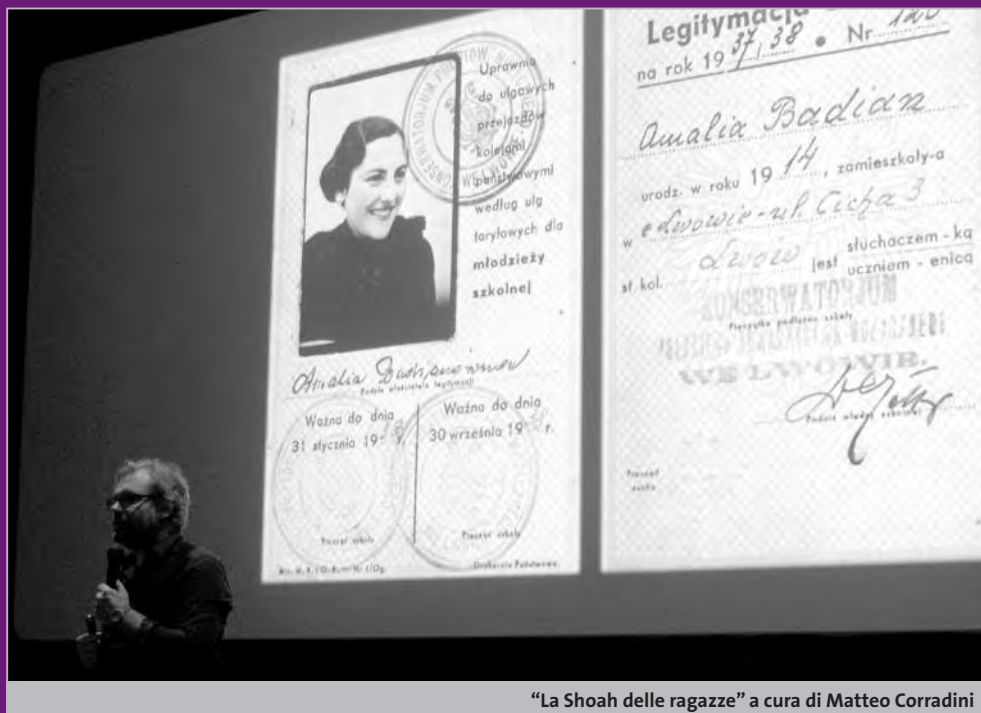 Uprawnia
do ulgowych
przejazdów
kolejami
państwowymi
według ulg
taryfowych dla
młodzieży
szkolnej
Amalia
Podpis właściciela legitymacji
Ważna do dnia
31 stycznia 19 r.
Ważna do dnia
30 września 19 r.
Pieczęć szkoły
Pieczęć szkoły
Legitymacja
na rok 1937/38 • Nr
Amalia Badian
urodz. w roku 1914, zamieszkały-a
w Lwowie - ul. Cicha 3
st. kol. Lwów jest słuchaczem - ką
uczniem - enicą
Pieczątka podłużna szkoły
WE LWOWIE.
Podpis władzy szkolnej
Pieczęć
sucha
"La Shoah delle ragazze" a cura di Matteo Corradini